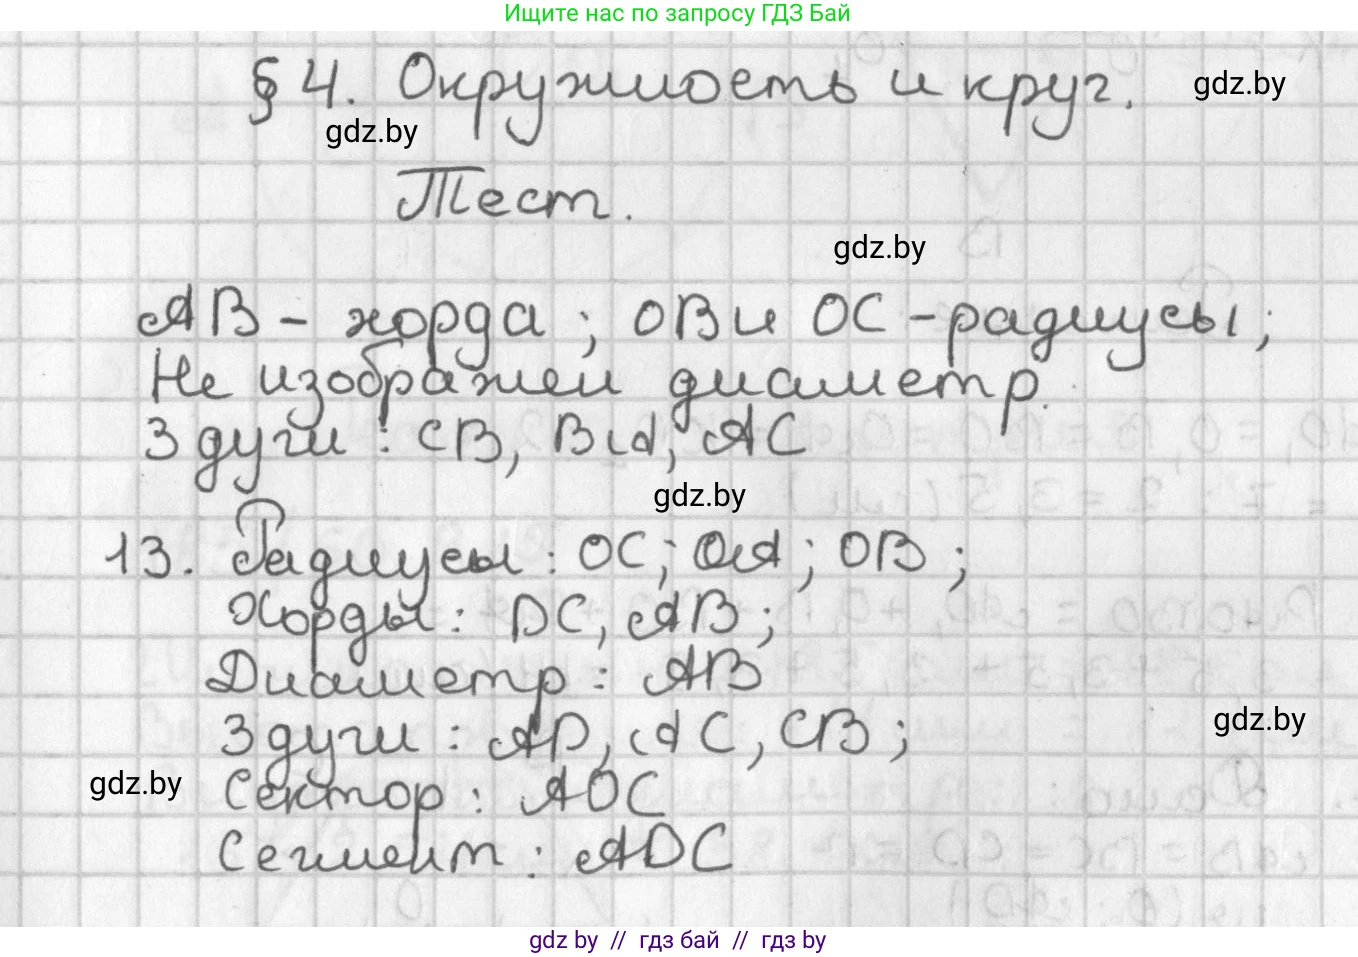 Ищите нас по запросу ГДЗ Бай
§ 4. Окружность и круг.
gdz.by
gdz.by
Тест.
gdz.by
AB - хорда; OB и OC - радиусы;
Не изображен диаметр.
3 дуги: CB, BA, AC
gdz.by
13. Радиусы: OC; OA; OB;
Хорды: DC, AB;
Диаметр: AB
3 дуги: AD, AC, CB;
gdz.by
gdz.by
Сектор: AOC
Сегмент: ADC
gdz by // гдз бай // гдз by